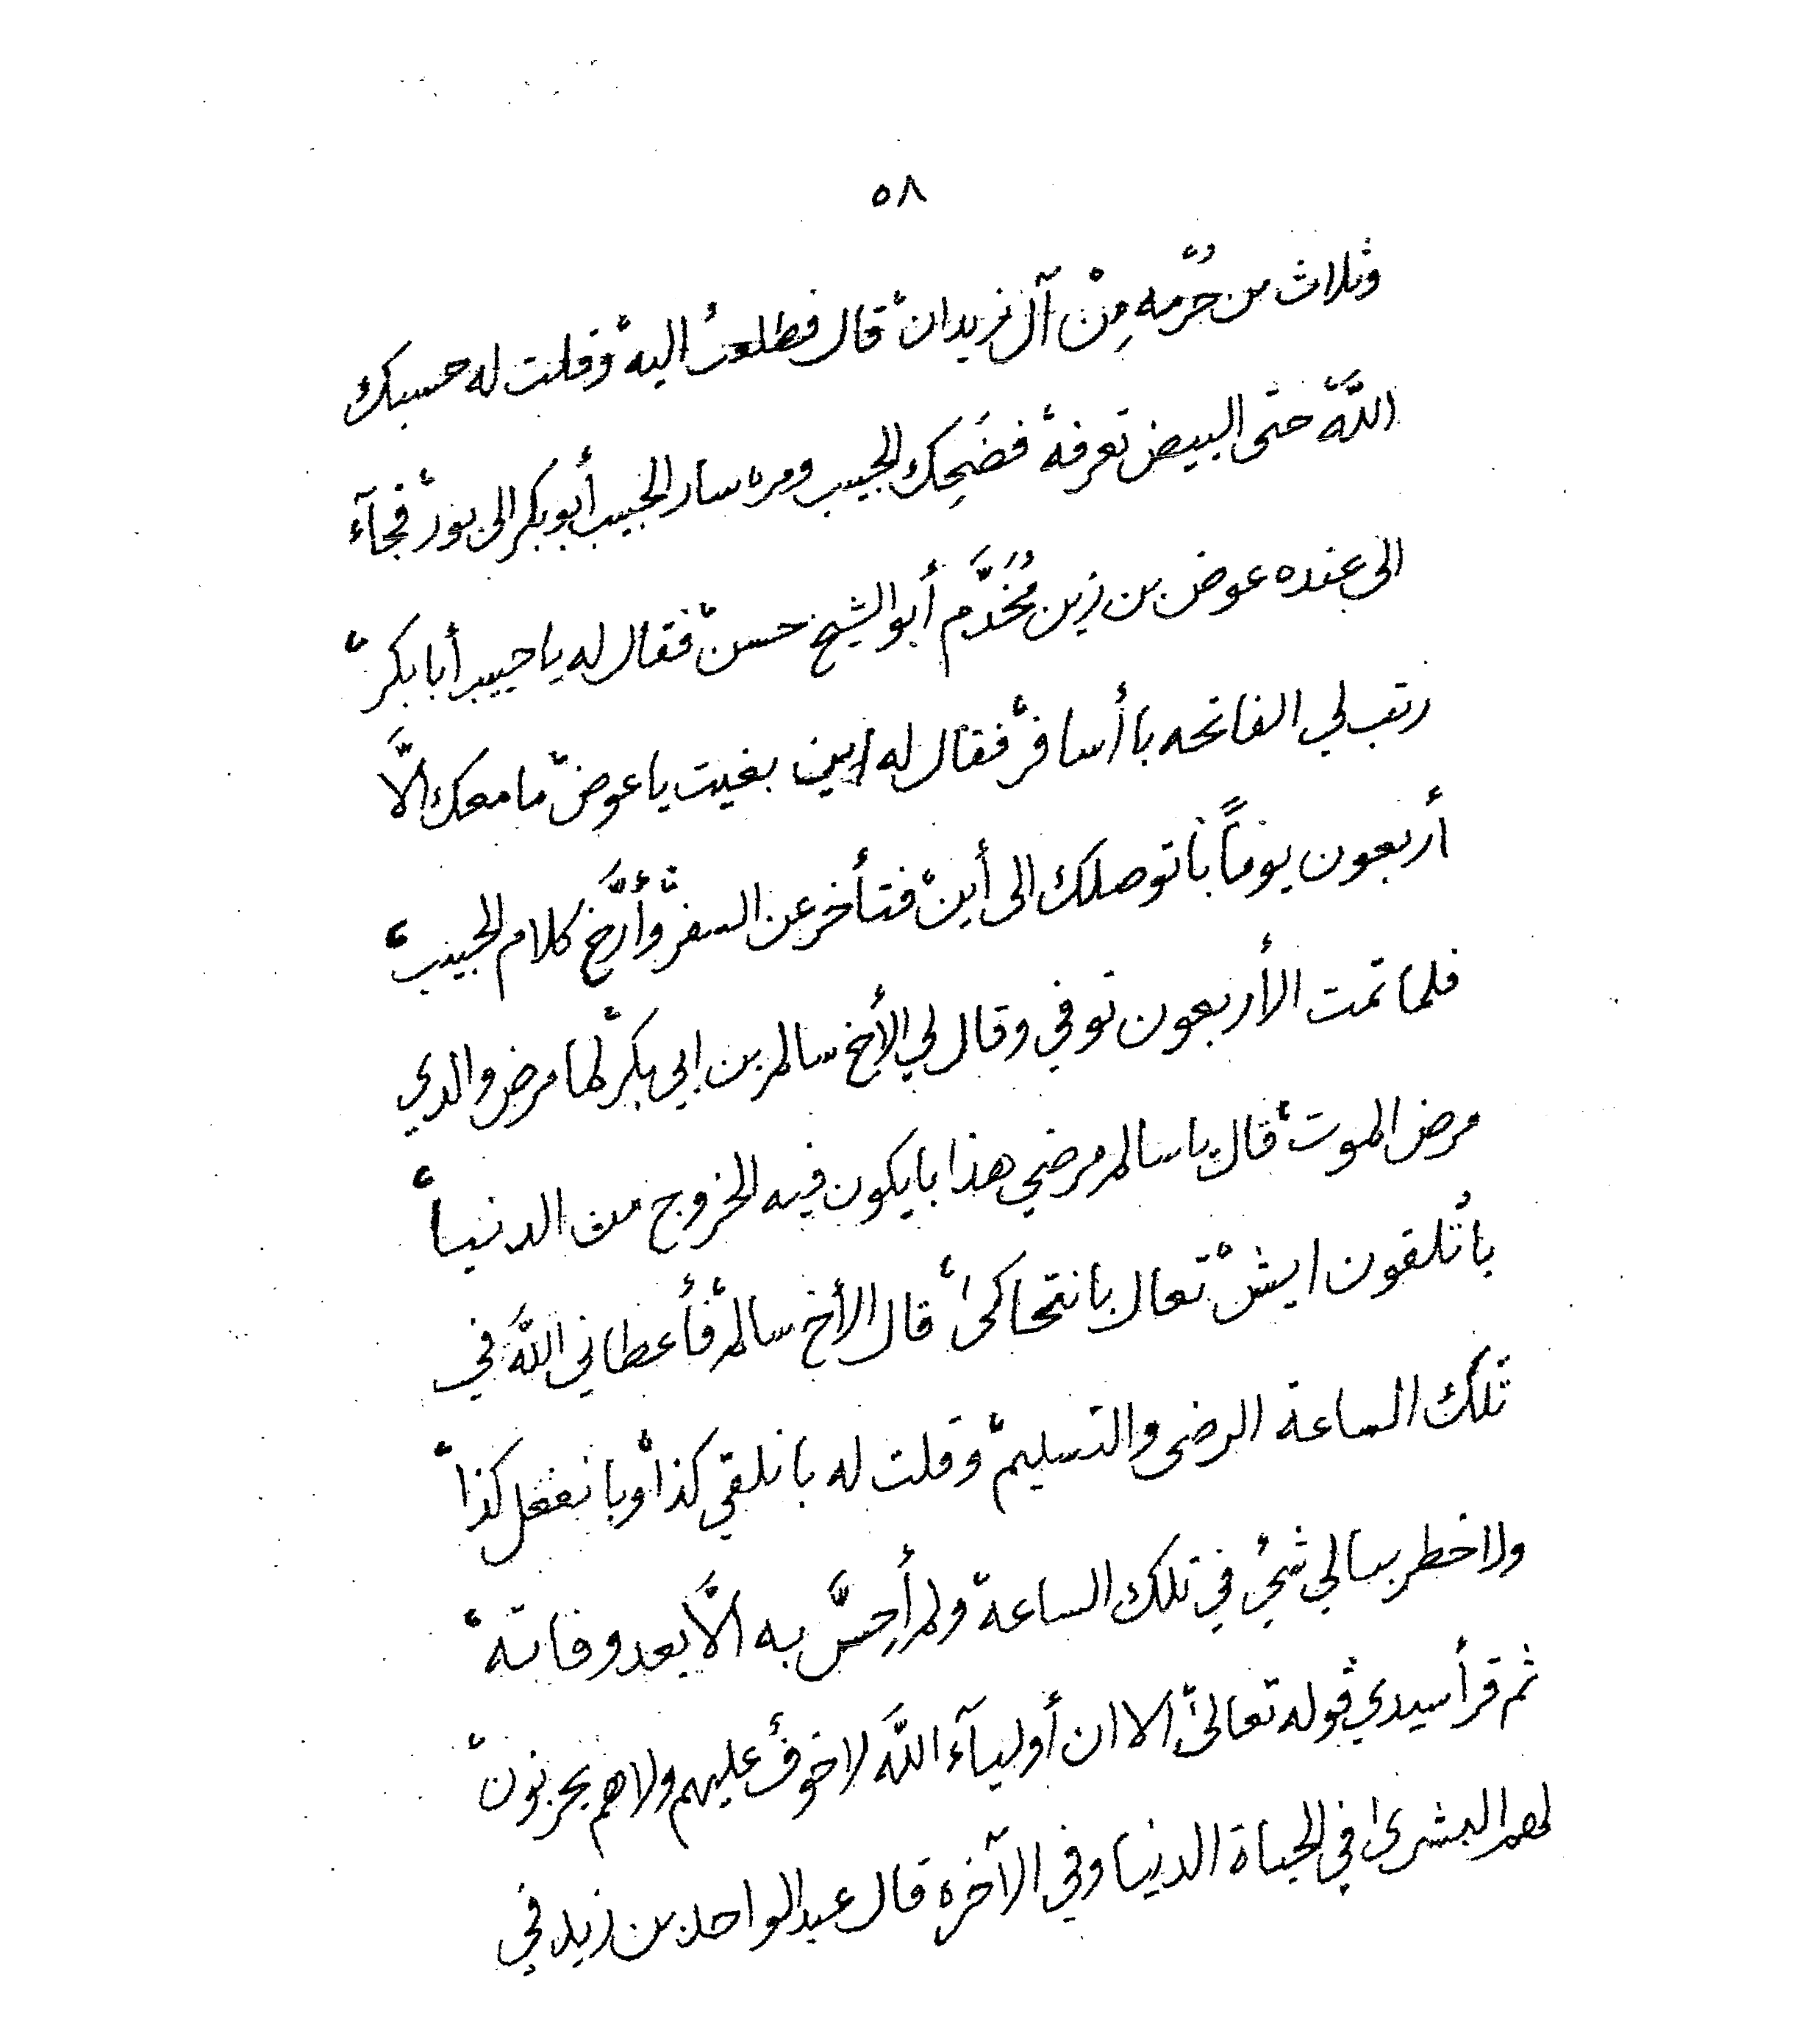 ٥٨
وثلاث من حُرْمه مِنْ آل زيدان، قال فطلعتُ اليه، وقلت له حسبك
اللَّه حتى البيض تعرفه، فضَحِكَ الحبيب ومره سار الحبيب أبوبكر الى بور، فجآء
الى عنده عوض بن زين مُخَدَّم أبو الشيخ حسن، فقال له ياحبيب أبابكر،
رتب لي الفاتحه با أسافر، فقال له اين بغيت ياعوض، مامعك الَّا
أربعون يوماً باتوصلك الى أين، فتأخر عن السفر، وأُرَّخ كلام الحبيب،
فلما تمت الأربعون توفي وقال لي الأخ سالم بن ابي بكر، لما مرض والدي
مرض الموت، قال ياسالم مرضي هذا بايكون فيه الخروج من الدنيا،
باتُلقون ايش، تعال بانتحاكى، قال الأخ سالم، فأعطاني اللَّه في
تلك الساعة الرضى والتسليم، وقلت له بانلقي كذا، وبانفعل كذا،
ولاخطر ببالي شيءُ في تلك الساعة، ولم أُحِسَّ به الَّا بعد وفاته،
ثم قرأ سيدي قوله تعالى، الا ان أوليآء اللَّه لاخوفُ عليهم ولاهم يحزنون،
لهم البشرى في الحياة الدنيا وفي الآخره قال عبدالواحد بن زيد في